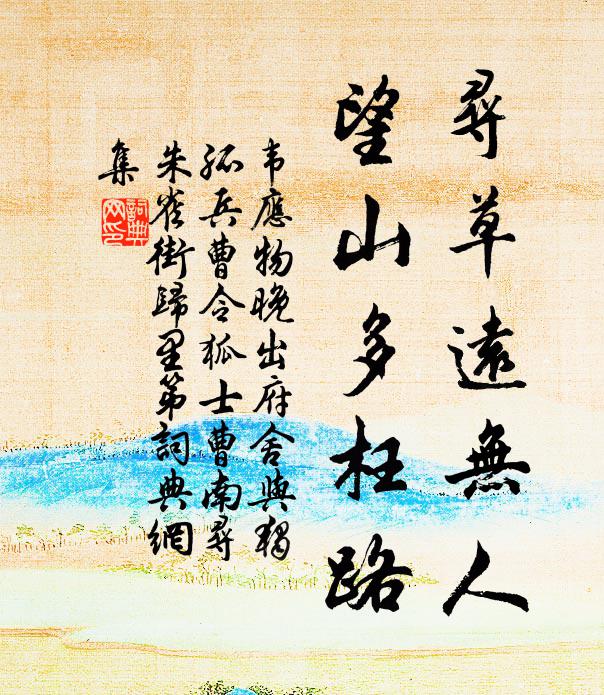 尋草遠無人
望山多枉路
韋應物晚出府舍與獨
孤兵曹令狐士曹南尋
朱雀街歸里第詞典網
集
詞典
网印